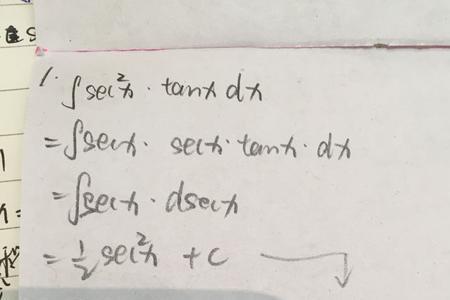 1.
∫sec²x · tanx dx
=∫secx · secx · tanx · dx
=∫secx · dsecx
= 1/2 sec²x + c